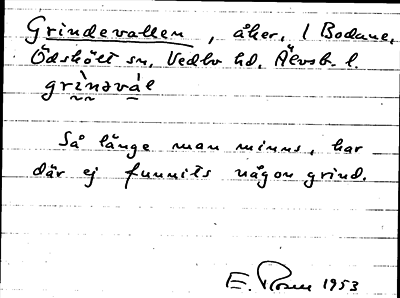 Grindevallen, åker, 1 Bodane,
Ödskölt sn, Vedbo hd, Älvsb. l.
grìnəvál
Så länge man minns, har
där ej funnits någon grind.
E. Rosen 1953